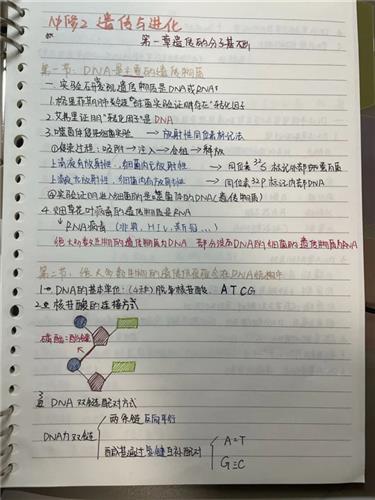 必修2 遗传与进化
第一章遗传的分子基础
第一节:DNA是主要的遗传物质
一、实验证据 遗传物质是DNA或RNA
1.格里菲斯的肺炎链球菌实验证明存在"转化因子"
2.艾弗里证明"转化因子"是DNA
3.噬菌体侵染细菌实验 → 放射性同位素标记法
①侵染过程:吸附→注入→合成→释放
上清液有放射性,细菌内无放射性 → 同位素³²S标记外部的蛋白质
上清液无放射性,细菌内有放射性 → 同位素32P标记内部DNA
④实验证明进入细菌的是噬菌体的DNA(遗传物质)
4.烟草花叶病毒的遗传物质是RNA
↳ RNA病毒(非典、HIV、新冠...)
绝大多数生物的遗传物质为DNA 部分没有DNA的 的遗传物质为RNA
第二节:绝大多数生物的遗传信息 在DNA结构中
1. DNA的基本单位:(4种)脱氧核苷酸. A T C G
2. 核苷酸的连接方式
磷酸二酯键
3 DNA双链配对方式
DNA为双链
两条链反向平行
碱基通过氢键互补配对
A=T
G≡C